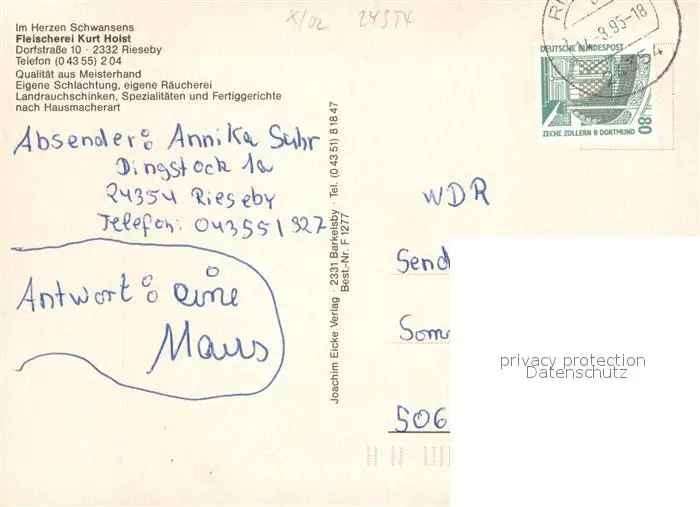 Im Herzen Schwansens
Fleischerei Kurt Holst
Dorfstraße 10 · 2332 Rieseby
Telefon (0 43 55) 2 04
Qualität aus Meisterhand
Eigene Schlachtung, eigene Räucherei
Landrauchschinken, Spezialitäten und Fertiggerichte
nach Hausmacherart
X/02
24354
Absender: Annika Suhr
Dingstock 1a
24354 Rieseby
Telefon: 04355/927
Antwort: eine
Maus
Joachim Eicke Verlag · 2331 Barkelsby · Tel. (0 43 51) 8 18 47
Best.-Nr. F 1277
.8.95-18
24354
DEUTSCHE BUNDESPOST
ZECHE ZOLLERN II DORTMUND
80
WDR
Send
Som
506
privacy protection
Datenschutz